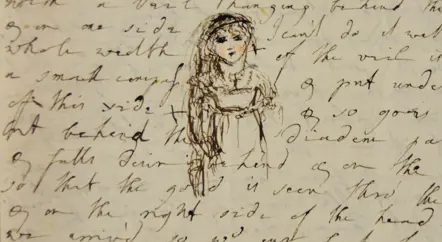 worn a veil hanging behind the
& on one side I can't do it well
whole width of the veil is
a small & put under
of this side + & so goes
but behind the diadem pa
& falls down behind & on the
so that the gold is seen thro' the
& on the right side of the head
we arriv'd so